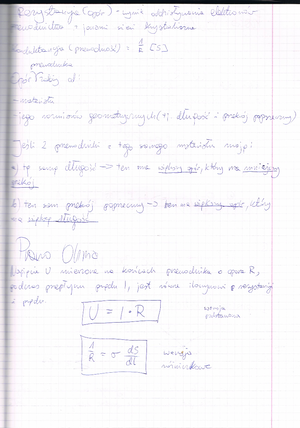 Rezystancja (opór) - wynik oddziaływania elektronów
przewodnictwa z jonami sieci krystalicznej
konduktancja (przewodność) = 1/R [S]
przewodnika
Opór zależy od:
- materiału
- jego rozmiarów geometrycznych (tj. długość i przekrój poprzeczny)
Jeśli 2 przewodniki z tego samego materiału mają:
a) tę samą długość -> ten ma większy opór, który ma mniejszy
przekrój
b) ten sam przekrój poprzeczny -> ten ma większy opór, który
ma większą długość
Prawo Ohma
Napięcie U mierzone na końcach przewodnika o oporze R,
podczas przepływu prądu I, jest równe iloczynowi rezystancji
i prądu
U = I · R
wersja
podstawowa
1/R = σ dS/dl
wersja
różniczkowa